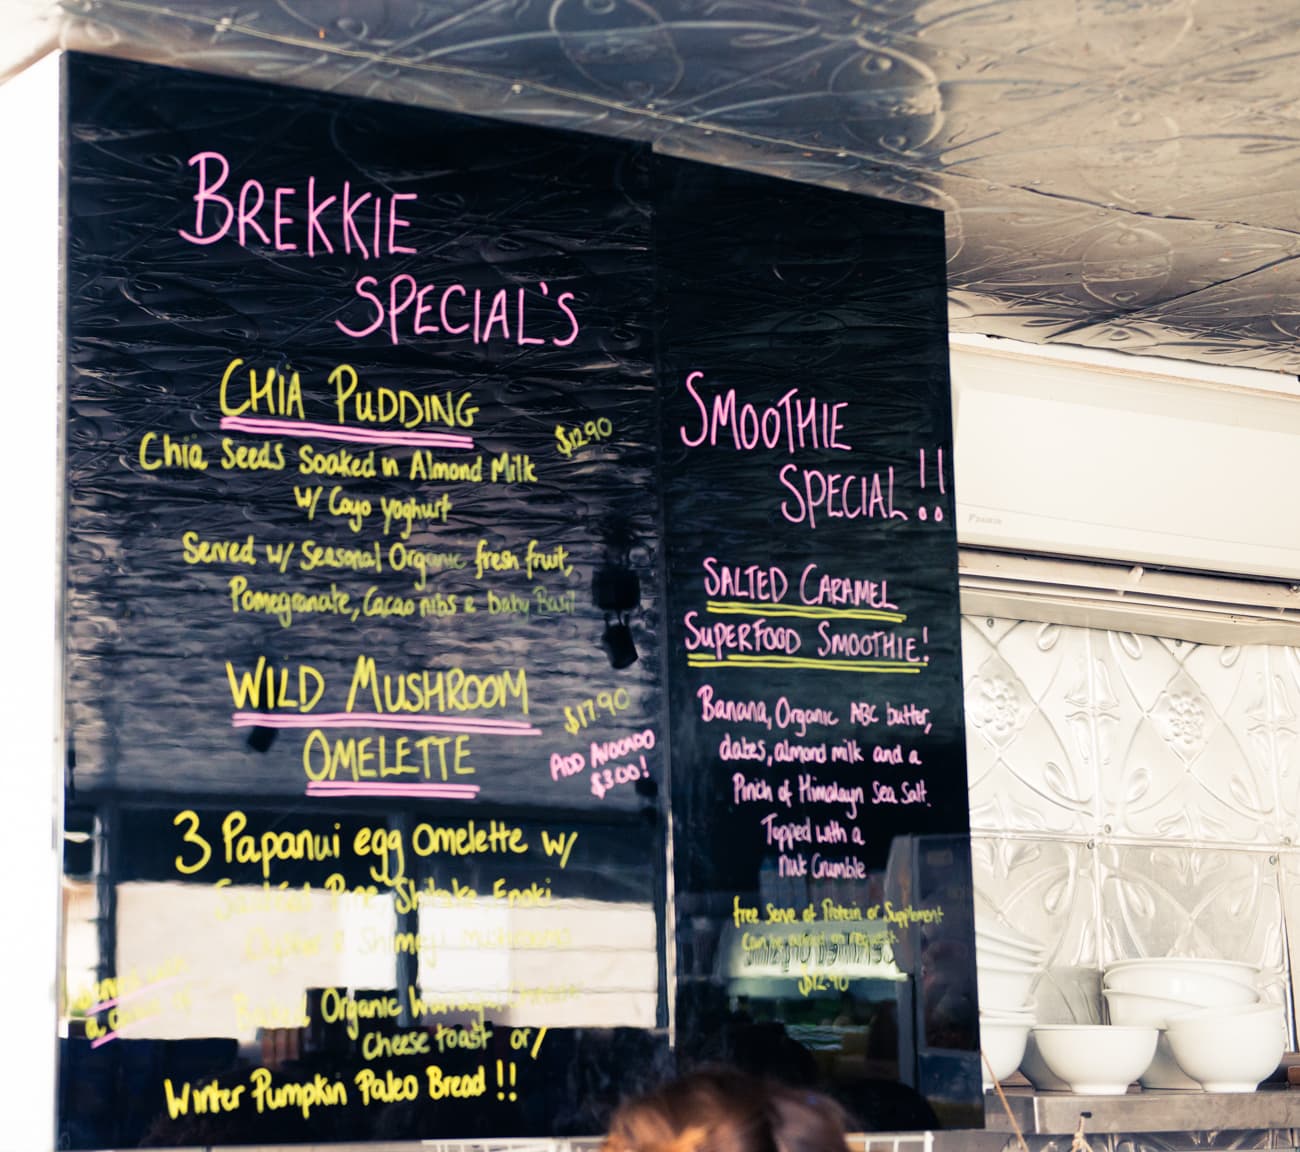 BREKKIE
SPECIAL'S
CHIA PUDDING
$12.90
Chia Seeds Soaked in Almond Milk
w/ Coyo yoghurt
Served w/ Seasonal Organic fresh fruit,
Pomegranate, Cacao nibs & baby Basil
WILD MUSHROOM
$17.90
OMELETTE
ADD AVOCADO
$3.00!
3 Papanui egg Omelette w/
Enoki
Oyster & Shimeji mushrooms
Organic
Cheese toast or/
Winter Pumpkin Paleo Bread !!
SMOOTHIE
SPECIAL !!
SALTED CARAMEL
SUPERFOOD SMOOTHIE!
Banana, Organic ABC butter,
dates, almond milk and a
Pinch of Himalayn Sea Salt.
Topped with a
Nut Crumble
free Serve of Protein or Supplement
Can be added on request
$12.90
DAIKIN